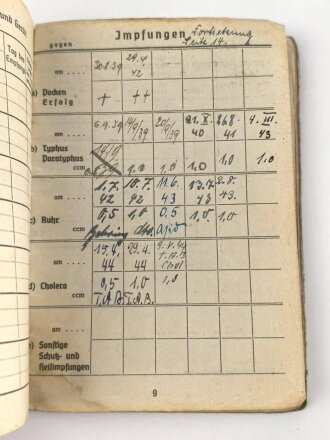 und Gerät
Tag des
Empf
Impfungen Fortsetzung
Seite 14.
gegen
am .... 30.8.39 29.4. 42
a) Pocken
Erfolg + ++
am .... 6.9.39 14/9/39 20/9/39 21. X. 40 26.8. 41 4. III. 43
b) Typhus
Paratyphus
ccm 1.0 1.0 1.0 1,0 1.0
am .... 1.7. 42 10.7. 42 11.6. 43 13.7 43
c) Ruhr
ccm 0,5 1,0 0,5 1,0
am .... 15.4. 44 29.4. 44
d) Cholera
ccm 0,5 1.0
T.A.B. T.A.B.
am ....
e) Sonstige
Schutz- und
Heilimpfungen
9